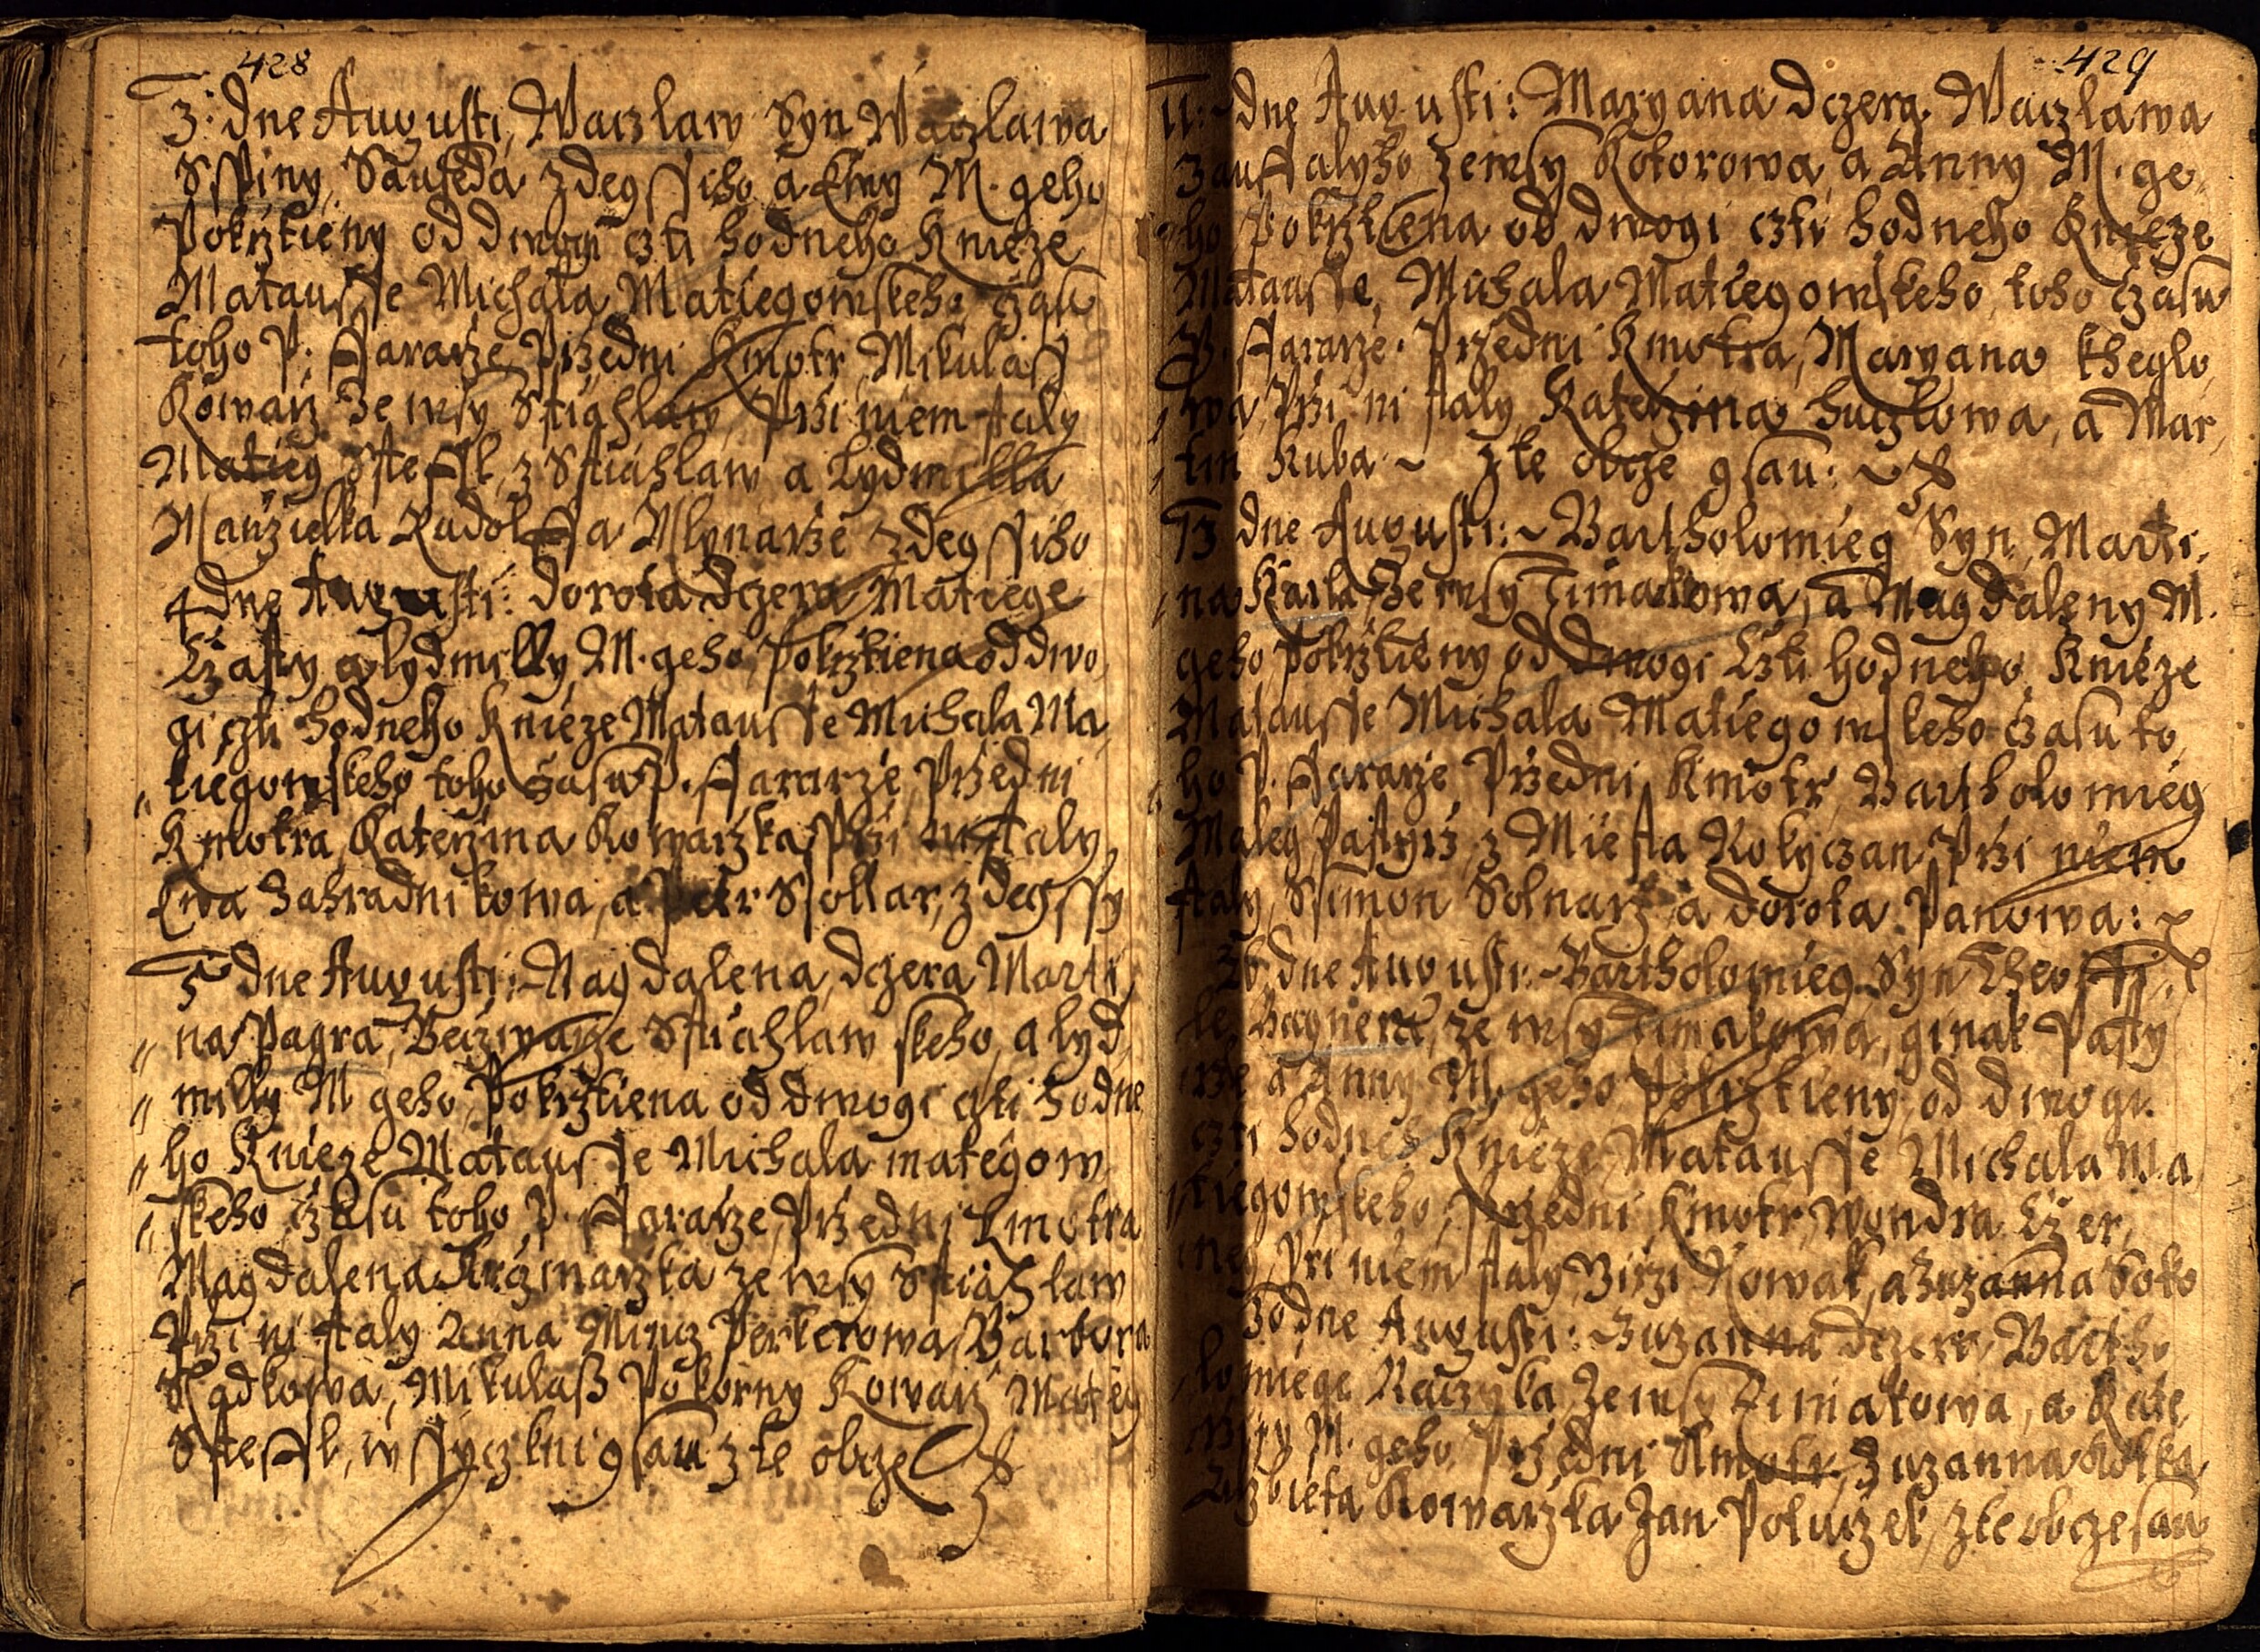 428
3. dne Augusti, Waczlaw Syn Waczlawa
Sspiny, Sauseda zdegssiho a Ewy M. geho
Pokrztieny od dwogi czti hodneho Knieze
Matausse Michala Matiegowskeho czasu
toho P: Fararze Przedni Kmotr Mikulass
Kowarz ze wsy Stiahlaw, Przi niem staly
Matieg Steffl, z Stiahlaw a Lydmilla
Manzielka Rudolffa Mlynarze zdegssiho
4 dne Augusti: Dorota dczera Matiege
Czasty a lydmilly M. geho, Pokrztiena od dwo,
gi czti hodneho Knieze Matausse Michala Ma,
tiegowskeho toho czasu P. Fararze Przedni
Kmotra, Katerzina Kowarzka, Przi ni staly
Ewa Zahradnikowa, a Petr Ssollar, zdegssy
5 dne Augusti: Magdalena, dczera Marti,
na Pagra, Beczwarze Stiahlawskeho, a lyd,
milly M geho, Pokrztiena od dwogi czti hodne
ho Knieze Matausse Michala mategow,
skeho czasu toho P. Fararze, Przedni Kmotra
Magdalena Krczmarzka ze wsy Stiahlaw
Przi ni staly Anna Mincz Perkerowa, Barbora
Radkowa, Mikulass Pokorny Kowarz Matieg
Steffl, wssyczkni gsau z te obcze
429
11. dne Augusti: Maryana dczera Waczlawa
Zaustalyho ze wsy Kotorowa, a Anny M. ge,
ho Pokrztiena od dwogi czti hodneho Knieze
Matausse, Michala Matiegowskeho, toho czasu
P. Fararze. Przedni Kmotra, Maryana Kheglo,
wa, Przi ni staly, Katerzina huczlowa, a Mar,
tin Kuba ~ z te obcze gsau: ~
13 dne Augusti: ~ Bartholomieg Syn, Marti,
na Karla, ze wsy Timakowa, a Magdaleny M.
geho Pokrztieny od dwogi Czti hodneho Knieze
Matausse Michala Matiegowskeho czasu to,
ho P. Fararze Przedni Kmotr Bartholomieg
Maleg, Pastyrz, z Miesta Rokyczan Przi niem
staly, Ssimon Solnarz a Dorota Panowa:
26 dne Augusti: ~ Bartholomieg Syn Theoffi,
le Bagnera, ze wsy Timakowa, ginak Pasty
rze a Anny M. geho Pokrztieny od dwogi
czti hodneh Knieze Matausse Michala Ma,
tiegowskeho, Przedni Kmotr, Wondra Czer,
neg, Pri niem staly, Girzi Nowak, a Zuzanna Soko
30 dne Augusti: Zuzanna dczera Bartho
lomiege Raczyka, ze wsy Timakowa, a Kate
rziny M. geho, Przedni Kmotr, Zuzanna Holka
Alzbieta Kowarzka Jan Poluczek, z te obcze sau